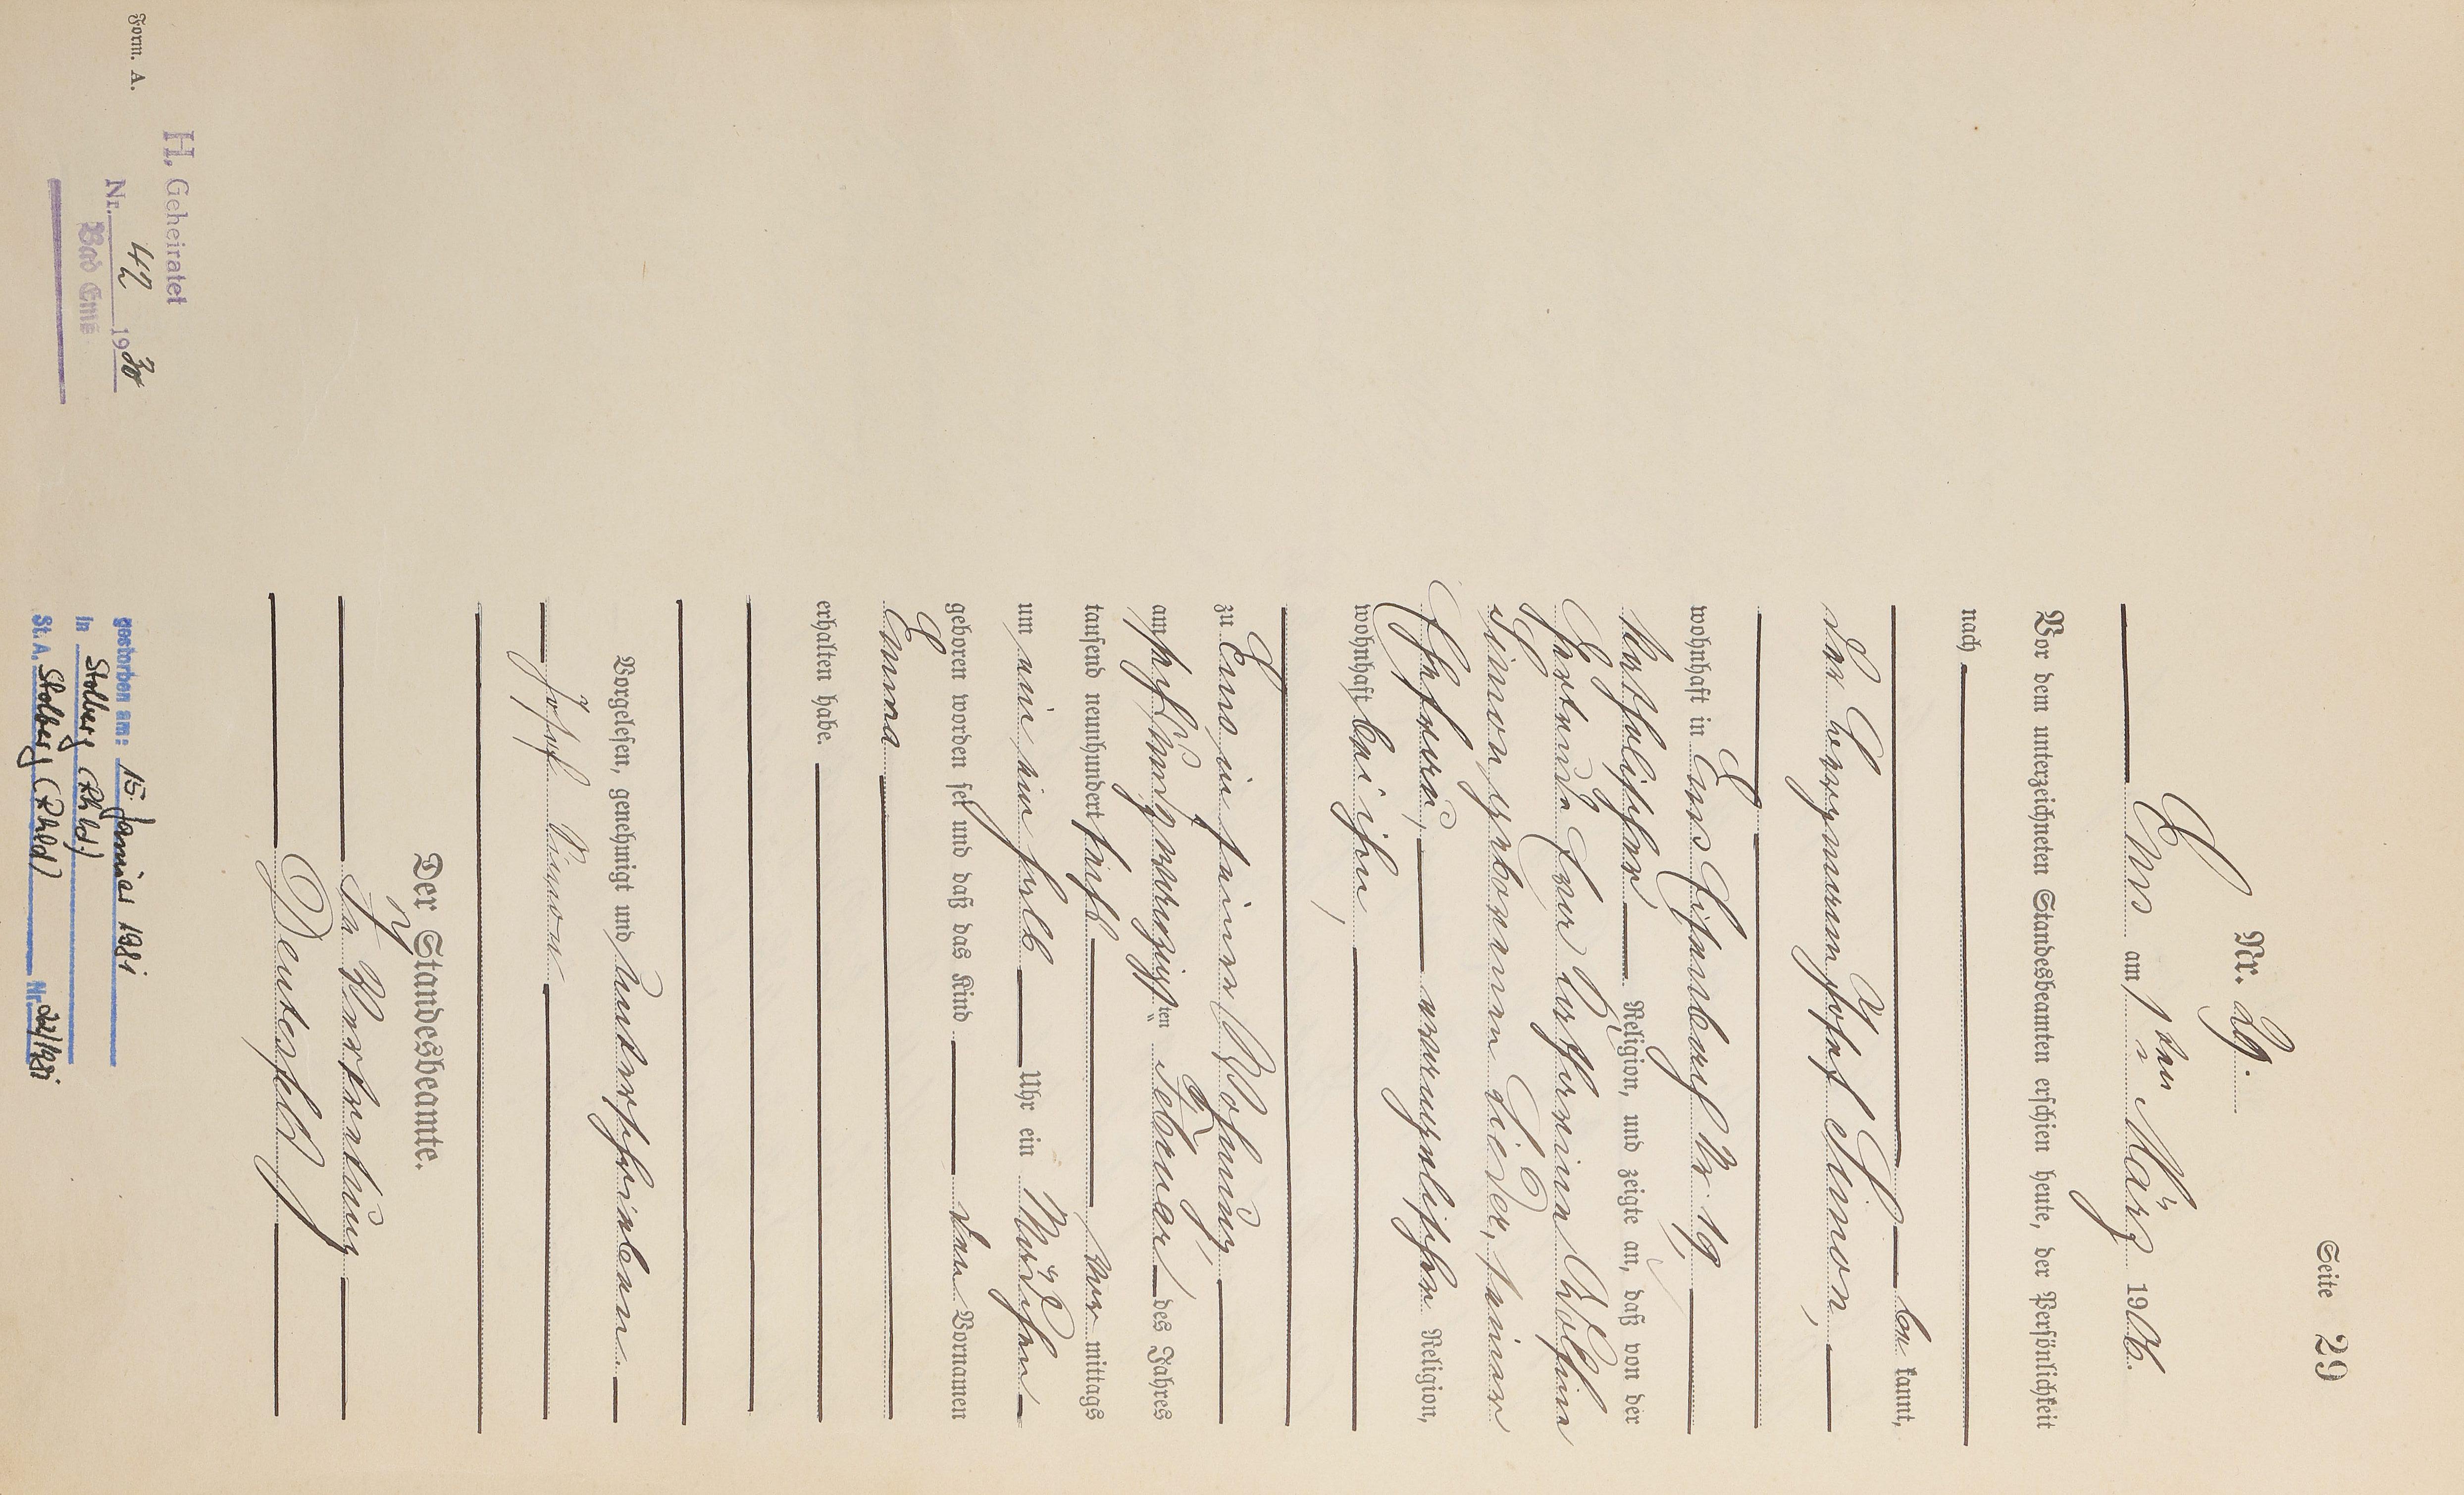 Seite 29
Nr. 29.
Ems am 1ten März 1906.
Vor dem unterzeichneten Standesbeamten erschien heute, der Persönlichkeit
nach
be kannt,
der Bergmann Josef Simon,
wohnhaft in Ems Eisenbach Nr. 19,
katholischer Religion, und zeigte an, daß von der
Hertmuda Katharina Wilhelmine
Simon geborenen Linder, seiner
Ehefrau, evangelischer Religion,
wohnhaft bei ihm,
zu Ems in seiner Wohnung,
am sechsundzwanzigsten Februar des Jahres
tausend neunhundert sechs Vor mittags
um ein ein halb Uhr ein Mädchen
geboren worden sei und daß das Kind den Vornamen
Emma
erhalten habe.
Vorgelesen, genehmigt und unterschrieben
Josef Simon
Der Standesbeamte.
In Vertretung
Deutesfeld
Form. A.
H, Geheiratet
Nr. 42 1930
Bad Ems
gestorben am: 15. Januar 1981
in Stolberg (Rhld.)
St. A. Stolberg (Rhld) Nr. 22/1981